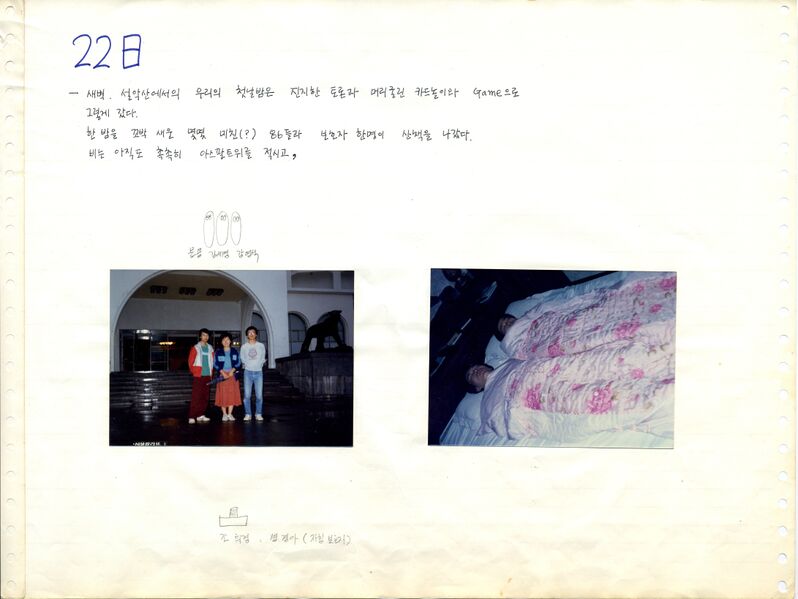 22日
- 새벽. 설악산에서의 우리의 첫날밤은 진지한 토론과 머리굴린 카드놀이와 Game으로
그렇게 갔다.
한 밤을 꼬박 새운 몇몇 미친(?) 86들과 보호자 한명이 산책을 나갔다.
비는 아직도 촉촉히 아스팔트위를 적시고,